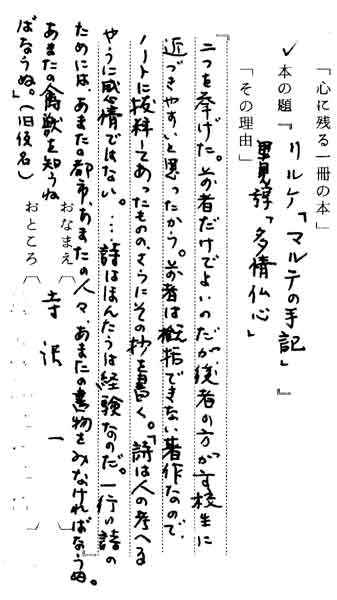 「心に残る一冊の本」
✓本の題『リルケ「マルテの手記」
里見弴「多情仏心」』
「その理由」
『二つを挙げた。前者だけでよいのだが後者の方が高校生に
近づきやすいと思ったから。前者は概括できない著作なので、
ノートに抜粋してあったものの、さらにその抄を書く。「詩は人の考へる
やうに感情ではない。…詩はほんたうは経験なのだ。一行の詩の
ためには、あまたの都市、あまたの人々、あまたの書物をみなければならぬ。
あまたの禽獣を知らね
ばならぬ。」(旧仮名)』
おなまえ〔寺沢 一〕
おところ〔 〕